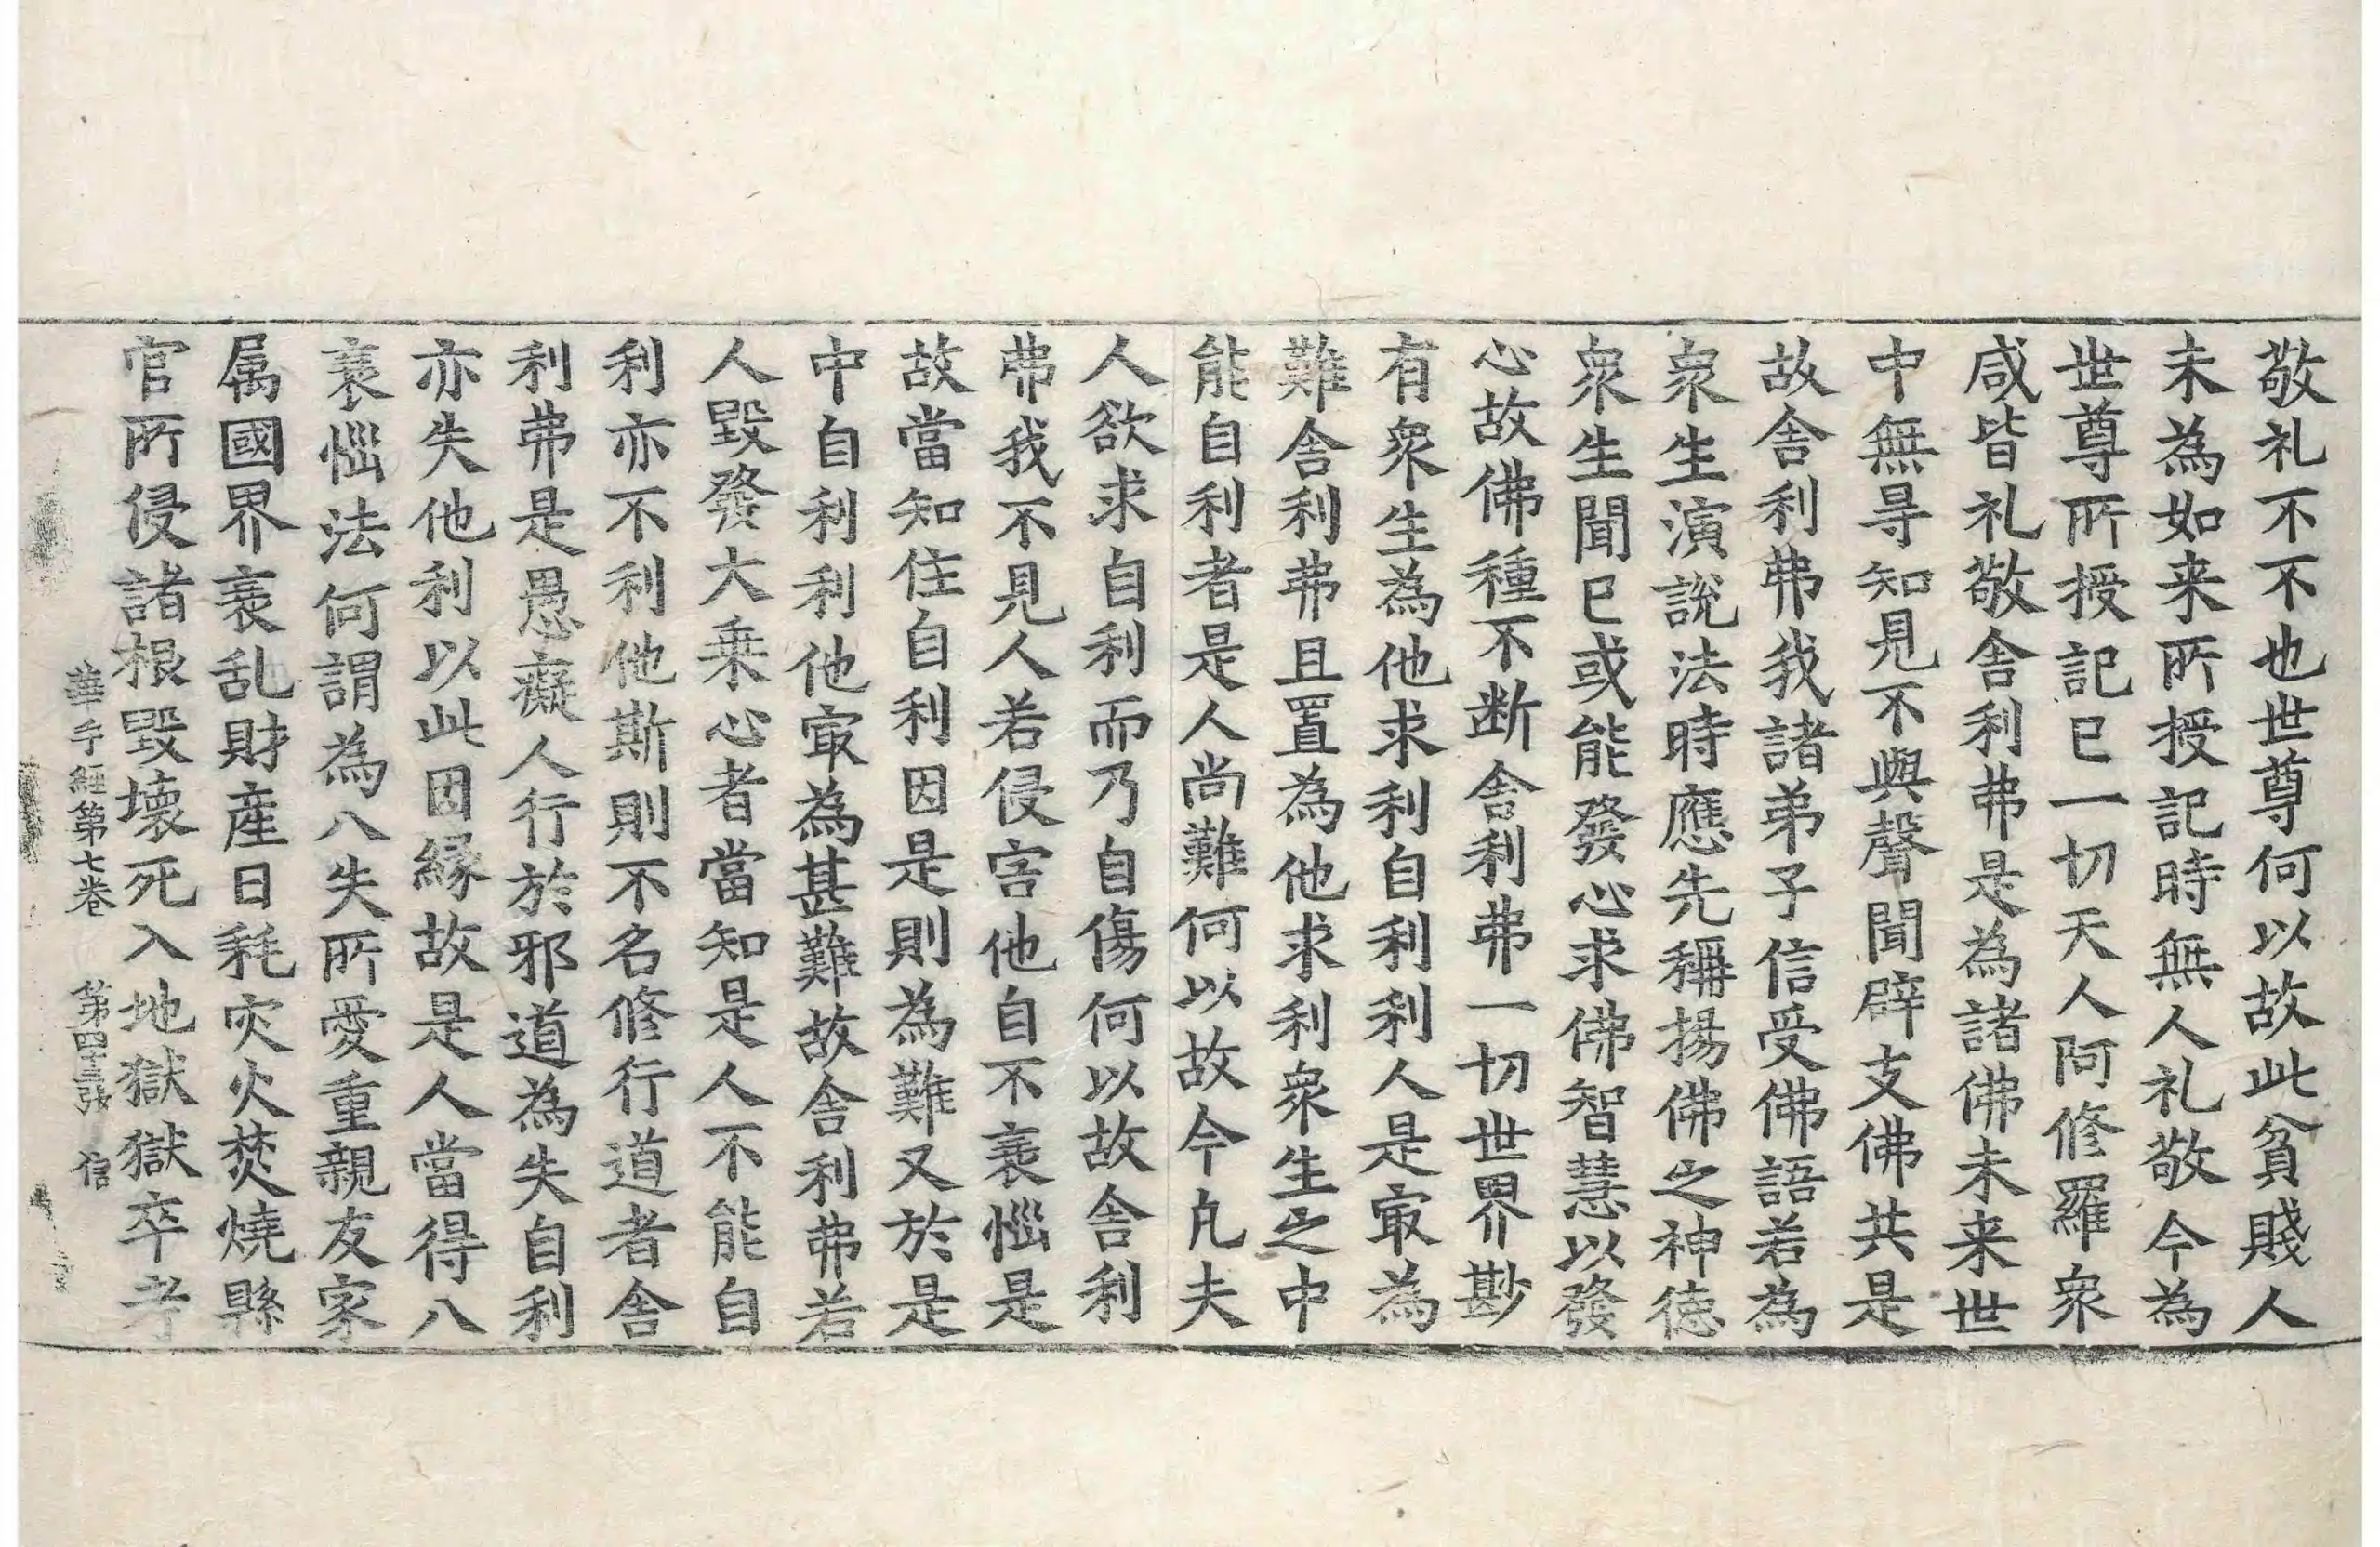 敬礼不不也世尊何以故此貧賤人
未為如来所授記時無人礼敬今為
世尊所授記已一切天人阿修羅衆
咸皆礼敬舎利弗是為諸佛未来世
中無㝵知見不與聲聞辟支佛共是
故舎利弗我諸弟子信受佛語若為
衆生演說法時應先稱揚佛之神德
衆生聞已或能發心求佛智慧以發
心故佛種不断舎利弗一切世界尠
有衆生為他求利自利利人是㝡為
難舎利弗且置為他求利衆生之中
能自利者是人尚難何以故今凡夫
人欲求自利而乃自傷何以故舎利
弗我不見人若侵害他自不衰惱是
故當知住自利因是則為難又於是
中自利利他㝡為甚難故舎利弗若
人毀發大乗心者當知是人不能自
利亦不利他斯則不名修行道者舎
利弗是愚癡人行於邪道為失自利
亦失他利以此因緣故是人當得八
衰惱法何謂為八失所愛重親友家
属國界衰乱財產日耗灾火焚燒縣
官所侵諸根毀壞死入地獄獄卒考
華手經第七卷 第四十三張 信